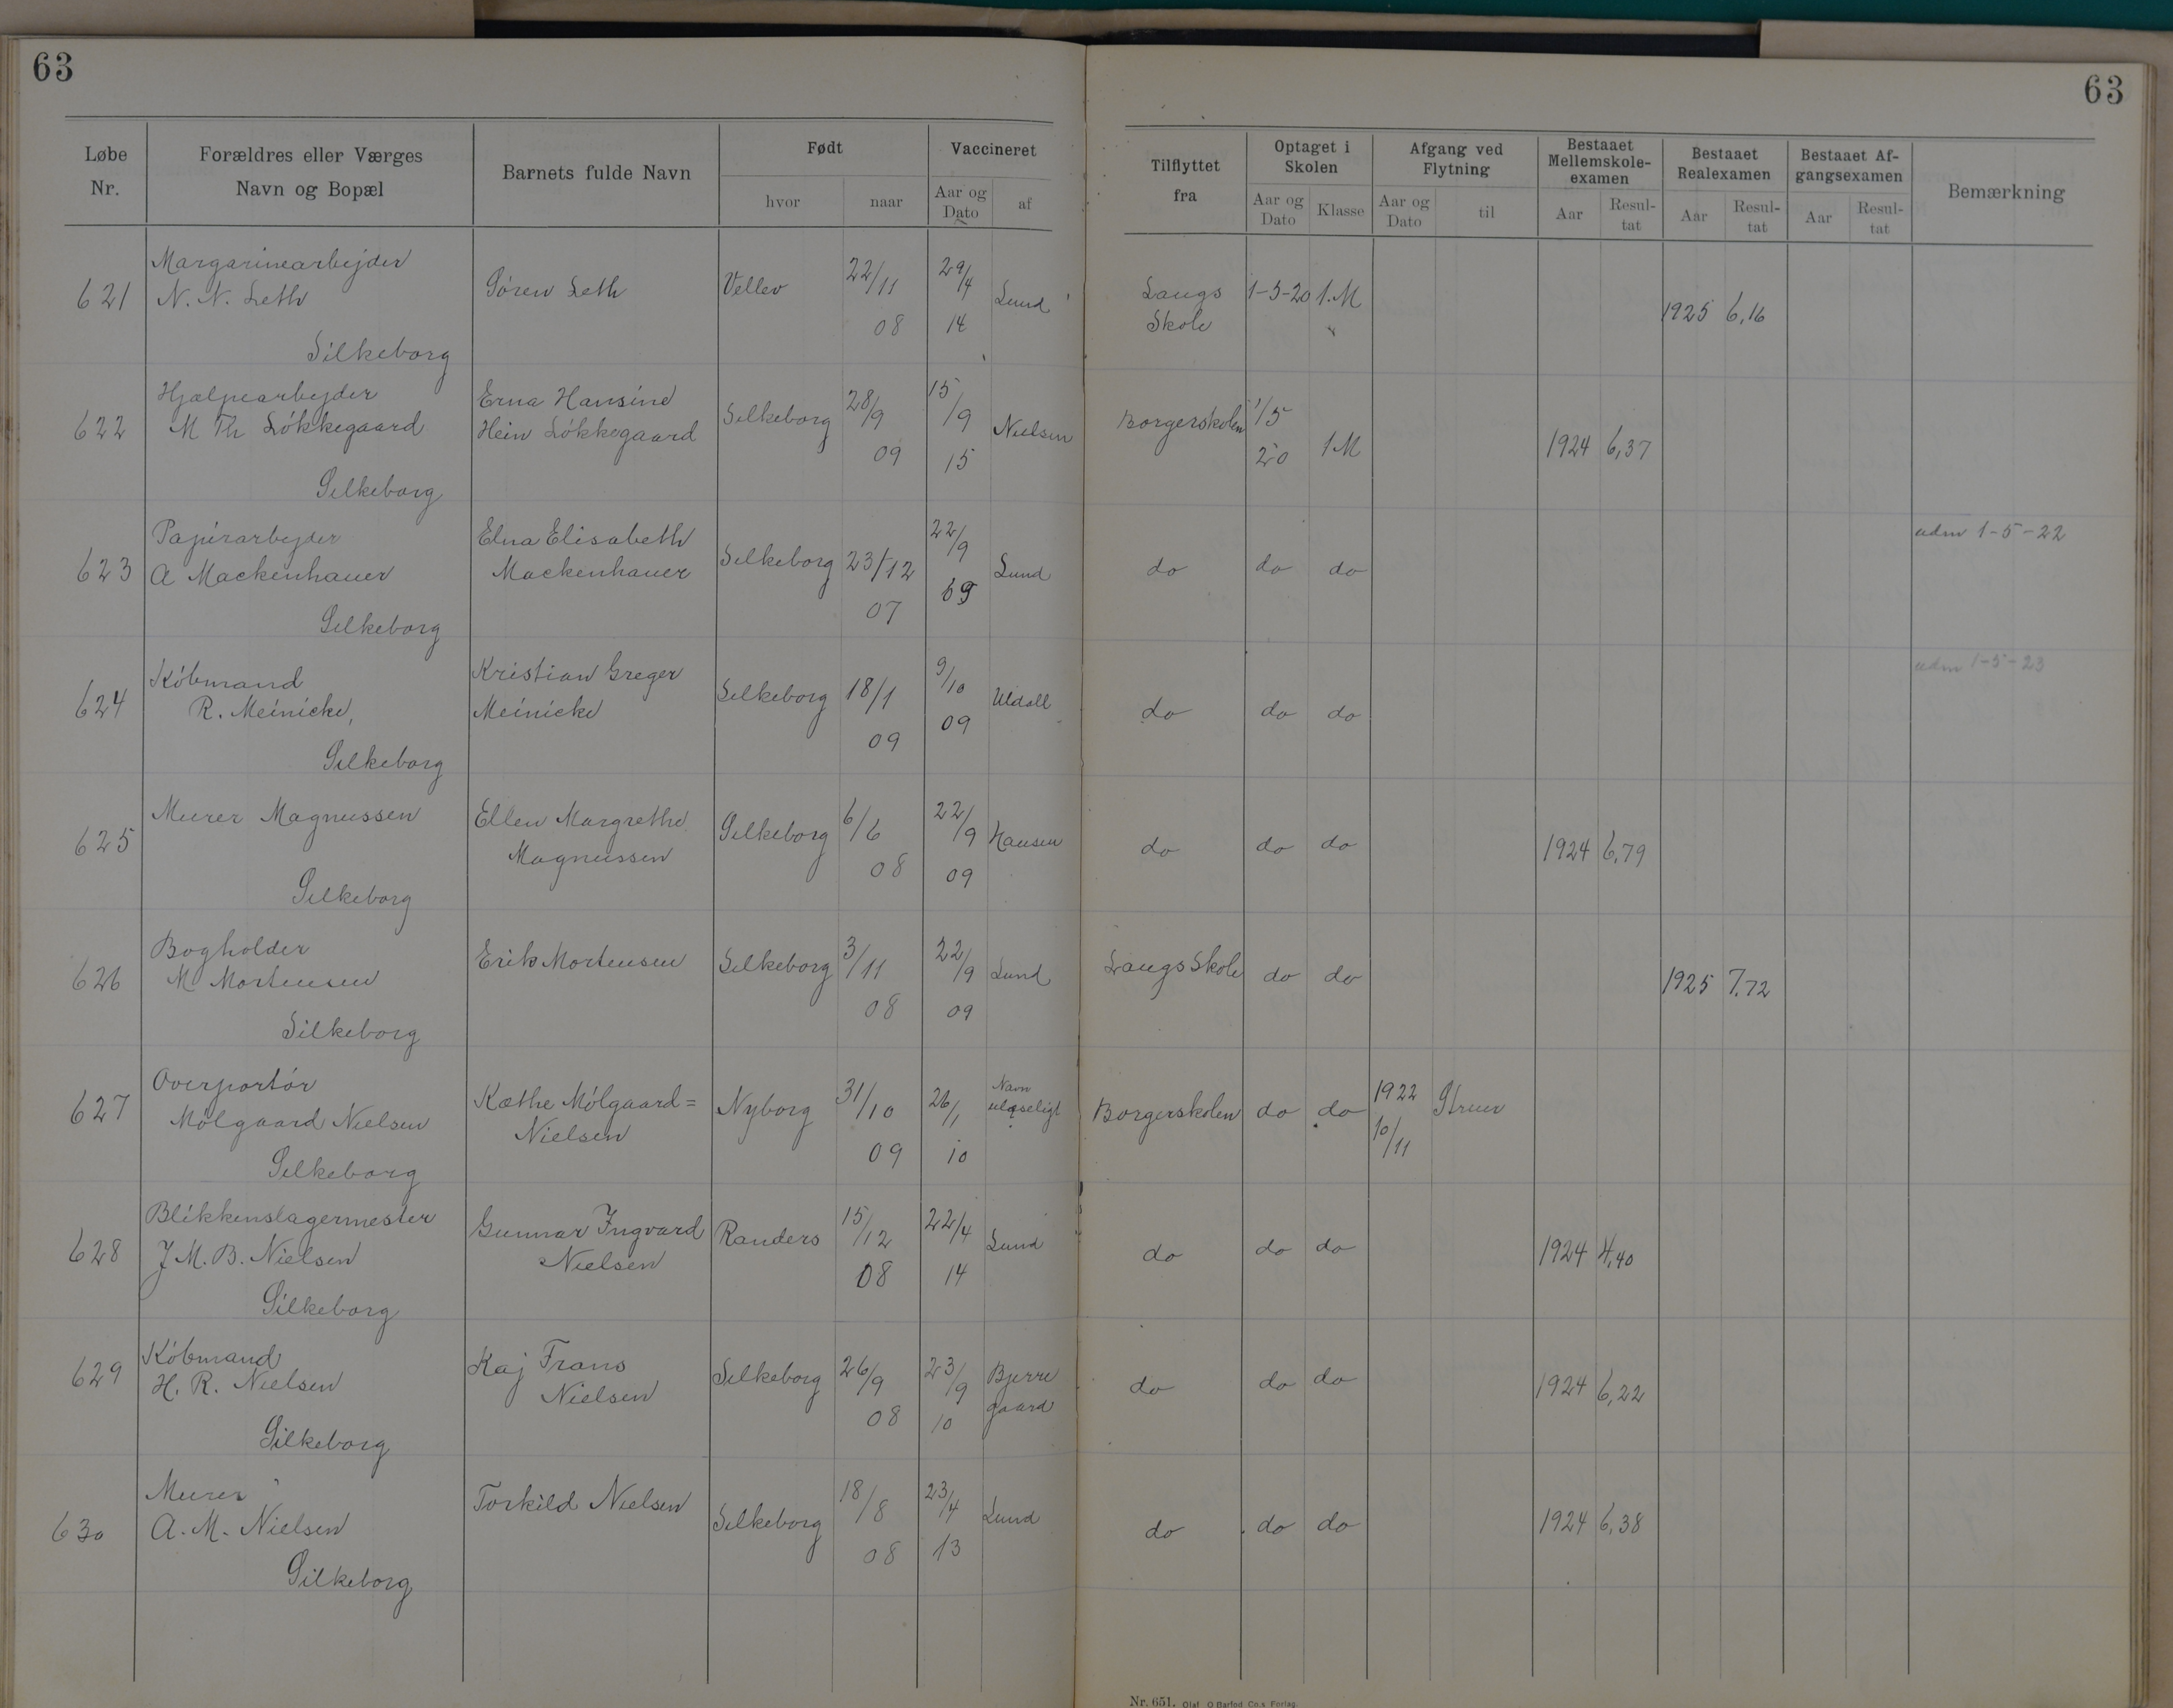 63
63
Løbe Nr.
Forældres eller Værges Navn og Bopæl
Barnets fulde Navn
Født
hvor
naar
Vaccineret
Aar og Dato
af
Tilflyttet fra
Optaget i Skolen
Aar og Dato
Klasse
Afgang ved Flytning
Aar og Dato
til
Bestaaet Mellemskole-examen
Aar
Resul-tat
Bestaaet Realexamen
Aar
Resul-tat
Bestaaet Af-gangsexamen
Aar
Resul-tat
Bemærkning
621 Margarinearbejder N. N. Leth Silkeborg Sören Leth Vellev 22/11 08 29/4 14 Lund Langs Skole 1-5-20 1.M 1925 6,16
622 Hjælpearbejder M Th Lökkegaard Silkeborg Erna Hansine Hein Lökkegaard Silkeborg 28/9 09 15/9 15 Nielsen Borgerskolen 1/5 20 1M 1924 6,37
623 Papirarbejder A Mackenhauer Silkeborg Elna Elisabeth Mackenhauer Silkeborg 23/12 07 22/9 09 Lund do do do udm 1-5-22
624 Köbmand R. Meinicke, Silkeborg Kristian Greger Meinicke Silkeborg 18/1 09 9/10 09 Uldall do do do udm 1-5-23
625 Murer Magnussen Silkeborg Ellen Margrethe Magnussen Silkeborg 6/6 08 22/9 09 Hansen do do do 1924 6,79
626 Bogholder M Mortensen Silkeborg Erik Mortensen Silkeborg 3/11 08 22/9 09 Lund Langs Skole do do 1925 7,72
627 Overportör Mölgaard Nielsen Silkeborg Kæthe Mölgaard= Nielsen Nyborg 31/10 09 26/1 10 Navn ulæseligt Borgerskolen do do 1922 10/11 Struer
628 Blikkenslagermester J M. B. Nielsen Silkeborg Gunnar Ingvard Nielsen Randers 15/12 08 22/4 14 Lund do do do 1924 4,40
629 Köbmand H. R. Nielsen Silkeborg Kaj Frans Nielsen Silkeborg 26/9 08 23/9 10 Bjerre gaard do do do 1924 6,22
630 Murer A. M. Nielsen Silkeborg Torkild Nielsen Silkeborg 18/8 08 23/4 13 Lund do do do 1924 6,38
Nr. 651. Olaf O Barfod Co.s Forlag.